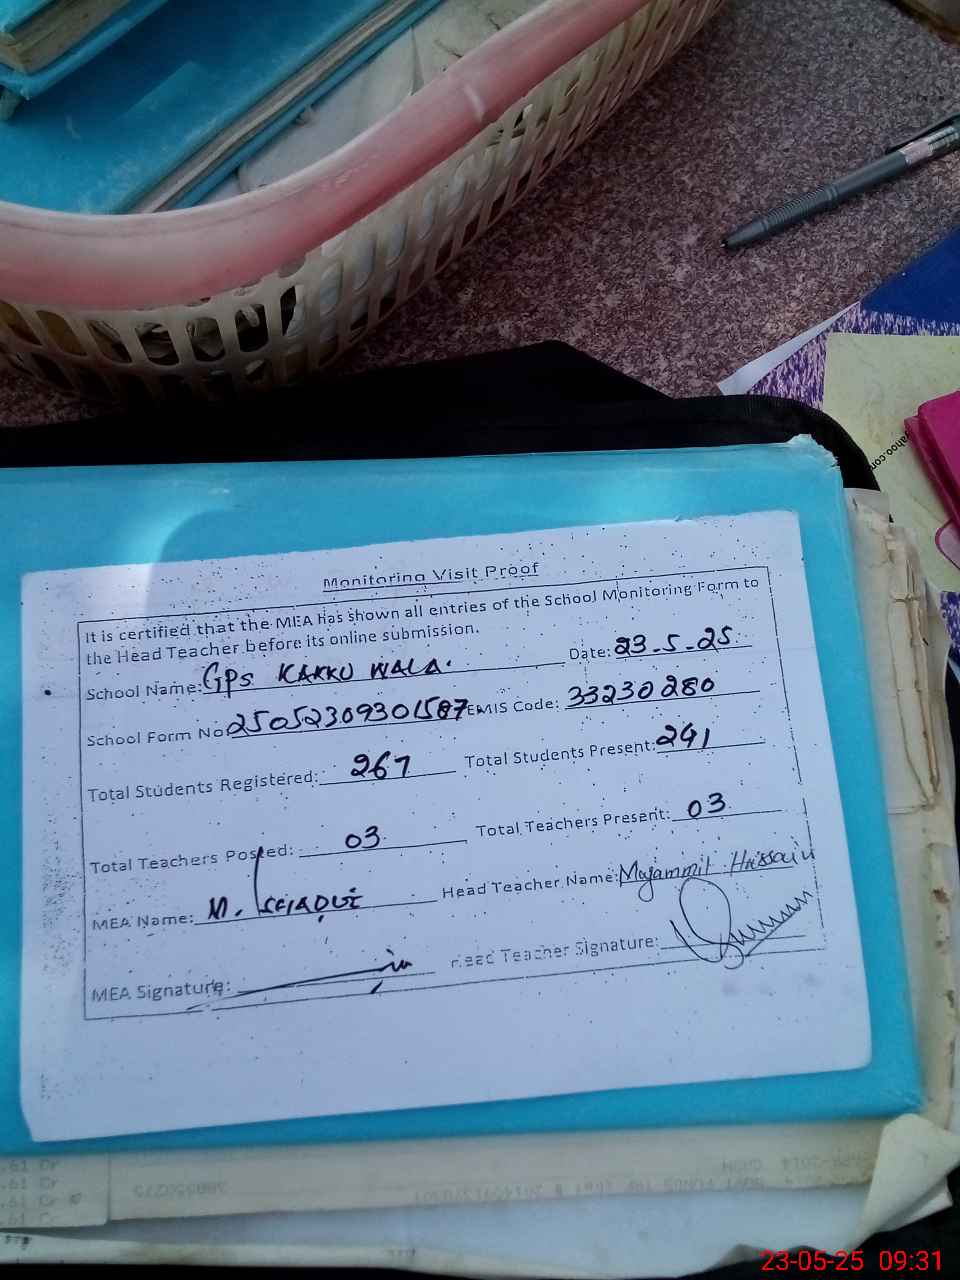 yahoo.com
Monitoring Visit Proof
It is certified that the MEA has shown all entries of the School Monitoring Form to
the Head Teacher before its online submission.
School Name: GPS KAKKU WALA. Date: 23-5-25
School Form No: 25052309301587 EMIS Code: 33230280
Total Students Registered: 267 Total Students Present: 241
Total Teachers Posted: 03 Total Teachers Present: 03
MEA Name: M. Head Teacher Name: Mujammil Hussain
MEA Signature: Head Teacher Signature:
.61 Cr
.61 Cr
.61 Cr
23-05-25 09:31